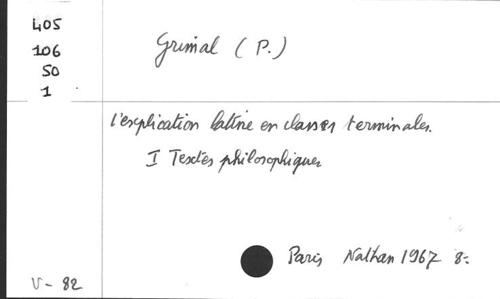 405
106
50
1
Grimal (P.)
l'explication latine en classes terminales.
I Textes philosophiques
Paris Nathan 1967 8=
V-82